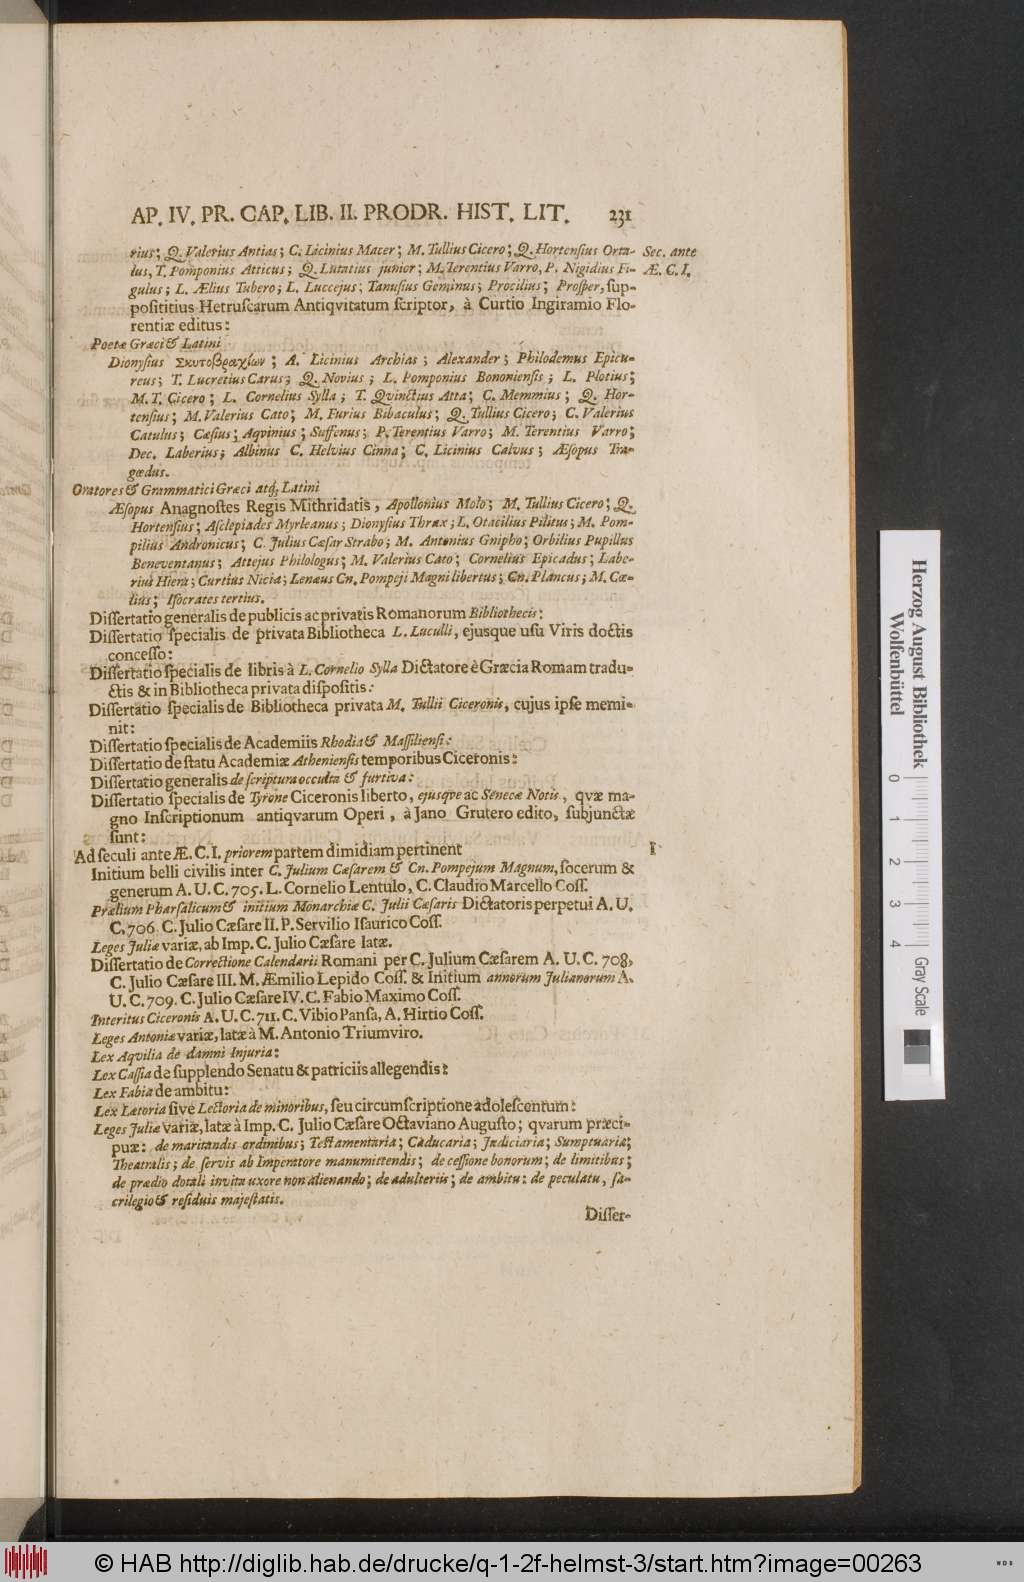 AP. IV. PR. CAP. LIB. II. PRODR. HIST. LIT. 231
rius; Q. Valerius Antias; C. Licinius Macer; M. Tullius Cicero; Q. Hortensius Orta- Sec. ante
lus, T. Pomponius Atticus; Q. Lutatius junior; M. Terentius Varro, P. Nigidius Fi- Æ. C. I.
gulus; L. Ælius Tubero; L. Luccejus; Tanusius Geminus; Procilius; Prosper, sup-
posititius Hetruscarum Antiqvitatum scriptor, à Curtio Ingiramio Flo-
rentiæ editus:
Poetæ Græci & Latini
Dionysius Σκυτοβραχίων; A. Licinius Archias; Alexander; Philodemus Epicu-
reus; T. Lucretius Carus; Q. Novius; L. Pomponius Bononiensis; L. Plotius;
M. T. Cicero; L. Cornelius Sylla; T. Qvinctius Atta; C. Memmius; Q. Hor-
tensius; M. Valerius Cato; M. Furius Bibaculus; Q. Tullius Cicero; C. Valerius
Catulus; Cæsius; Aqvinius; Suffenus; P. Terentius Varro; M. Terentius Varro;
Dec. Laberius; Albinus C. Helvius Cinna; C. Licinius Calvus; Æsopus Tra-
gœdus.
Oratores & Grammatici Græci atq; Latini
Æsopus Anagnostes Regis Mithridatis, Apollonius Molo; M. Tullius Cicero; Q.
Hortensius; Asclepiades Myrleanus; Dionysius Thrax; L. Otacilius Pilitus; M. Pom-
pilius Andronicus; C. Julius Cæsar Strabo; M. Antonius Gnipho; Orbilius Pupillus
Beneventanus; Attejus Philologus; M. Valerius Cato; Cornelius Epicadus; Labe-
rius Hiera; Curtius Nicia; Lenæus Cn. Pompeji Magni libertus; Cn. Plancus; M. Cœ-
lius; Isocrates tertius.
Dissertatio generalis de publicis ac privatis Romanorum Bibliothecis:
Dissertatio specialis de privata Bibliotheca L. Luculli, ejusque usu Viris doctis
concesso:
Dissertatio specialis de libris à L. Cornelio Sylla Dictatore è Græcia Romam tradu-
ctis & in Bibliotheca privata dispositis:
Dissertatio specialis de Bibliotheca privata M. Tullii Ciceronis, cujus ipse memi-
nit:
Dissertatio specialis de Academiis Rhodia & Massiliensi:
Dissertatio de statu Academiæ Atheniensis temporibus Ciceronis:
Dissertatio generalis de scriptura occulta & furtiva:
Dissertatio specialis de Tyrone Ciceronis liberto, ejusqve ac Senecæ Notis, qvæ ma-
gno Inscriptionum antiqvarum Operi, à Jano Grutero edito, subjunctæ
sunt:
Ad seculi ante Æ. C. I. priorem partem dimidiam pertinent I
Initium belli civilis inter C. Julium Cæsarem & Cn. Pompejum Magnum, socerum &
generum A. U. C. 705. L. Cornelio Lentulo, C. Claudio Marcello Coss.
Prælium Pharsalicum & initium Monarchiæ C. Julii Cæsaris Dictatoris perpetui A. U.
C. 706. C. Julio Cæsare II. P. Servilio Isaurico Coss.
Leges Juliæ variæ, ab Imp. C. Julio Cæsare latæ.
Dissertatio de Correctione Calendarii Romani per C. Julium Cæsarem A. U. C. 708,
C. Julio Cæsare III. M. Æmilio Lepido Coss. & Initium annorum Julianorum A.
U. C. 709. C. Julio Cæsare IV. C. Fabio Maximo Coss.
Interitus Ciceronis A. U. C. 711. C. Vibio Pansa, A. Hirtio Coss.
Leges Antoniæ variæ, latæ à M. Antonio Triumviro.
Lex Aqvilia de damni Injuria:
Lex Cassia de supplendo Senatu & patriciis allegendis:
Lex Fabia de ambitu:
Lex Lætoria sive Lectoria de minoribus, seu circumscriptione adolescentum:
Leges Juliæ variæ, latæ à Imp. C. Julio Cæsare Octaviano Augusto; qvarum præci-
puæ: de maritandis ordinibus; Testamentaria; Caducaria; Judiciaria; Sumptuaria;
Theatralis; de servis ab Imperatore manumittendis; de cessione bonorum; de limitibus;
de prædio dotali invita uxore non alienando; de adulteriis; de ambitu: de peculatu, sa-
crilegio & residuis majestatis.
Disser-
Herzog August Bibliothek
Wolfenbüttel
0 1 2 3 4 Gray Scale
© HAB http://diglib.hab.de/drucke/q-1-2f-helmst-3/start.htm?image=00263